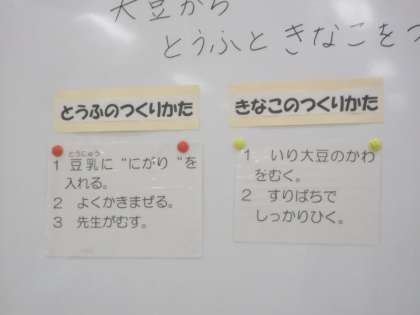 大豆から
とうふと きなこをつ
とうふのつくりかた
とうにゅう
1 豆乳に“にがり“を
入れる。
2 よくかきまぜる。
3 先生がむす。
きなこのつくりかた
1 いり大豆のかわ
をむく。
2 すりばちで
しっかりひく。